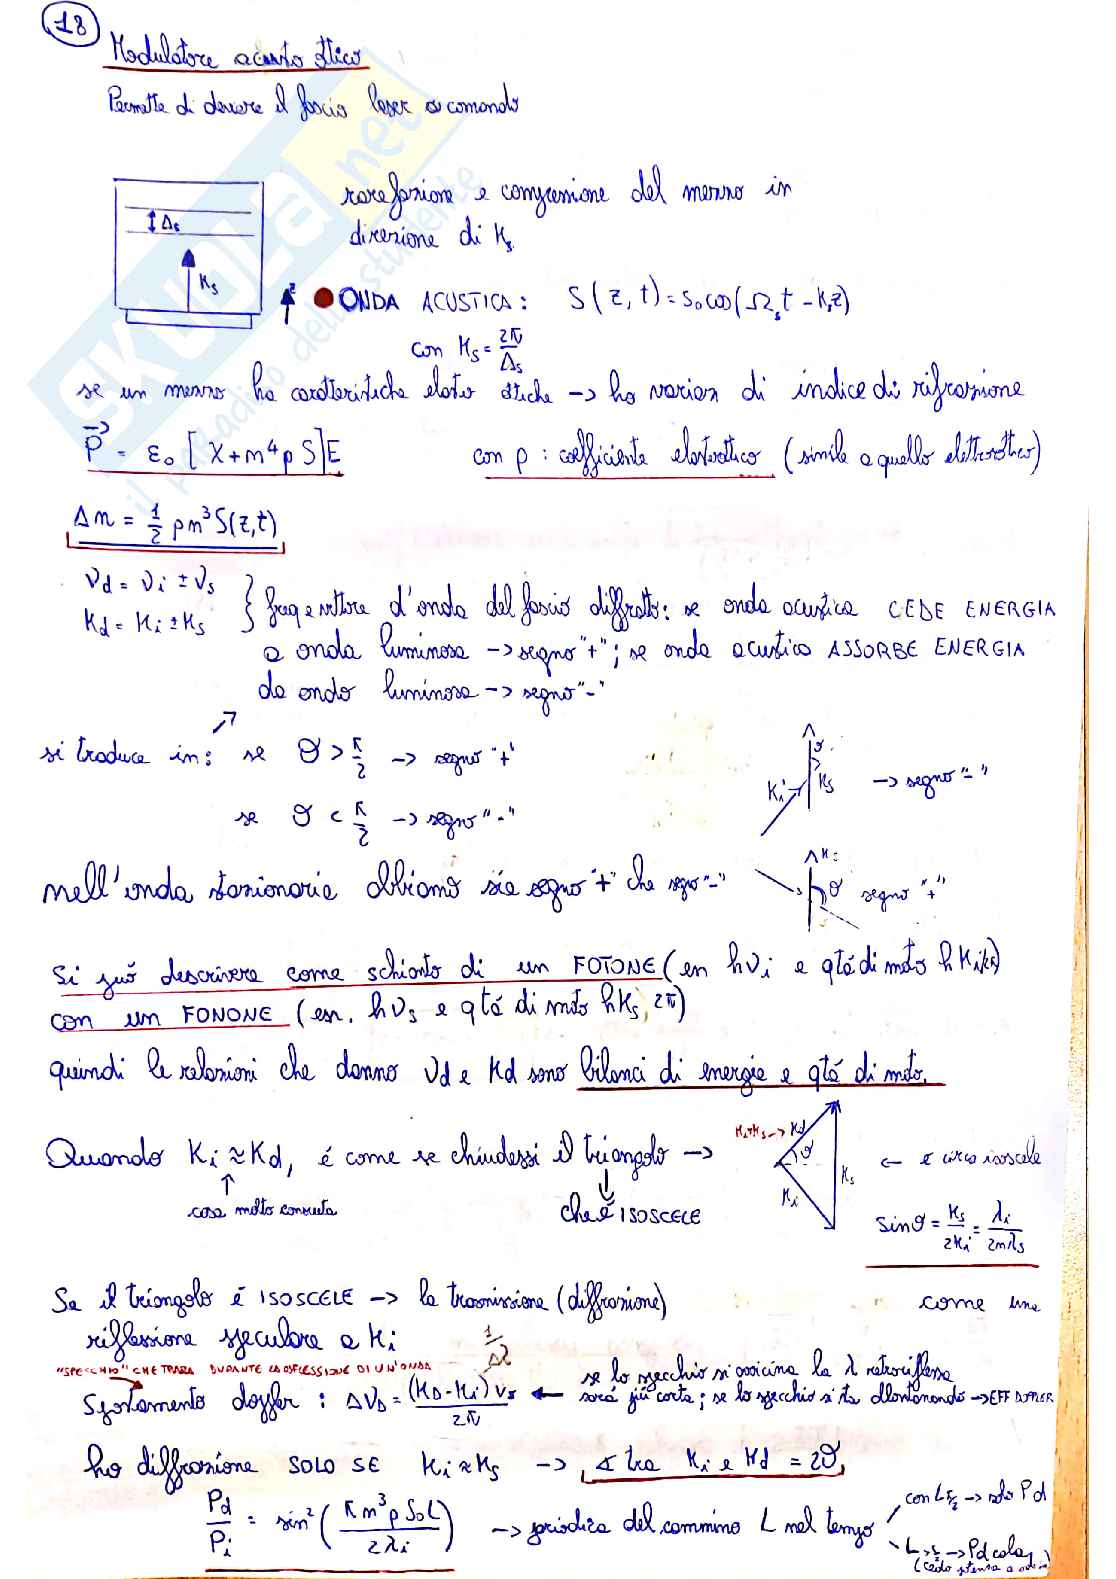 18
Modulatore acusto ottico
Permette di deviare il fascio laser a comando
SKUOLA.net
il paradiso dello studente
rarefazione e compressione del mezzo in
direzione di Ks
Δs
Ks
z
ONDA ACUSTICA: S(z,t) = S₀cos(Ωs t - Ksz)
con Ks = 2π/Λs
se un mezzo ha caratteristiche elasto ottiche -> ho variaz di indice di rifrazione
P = ε₀ [χ + m⁴ p S]E con p: coefficiente elastottico (simile a quello elettrottico)
Δm = 1/2 p m³ S(z,t)
νd = νi ± νs
Kd = Ki ± Ks } freq e vettore d'onda del fascio diffratto: se onda acustica CEDE ENERGIA
a onda luminosa -> segno "+"; se onda acustica ASSORBE ENERGIA
da onda luminosa -> segno "-"
si traduce in: se ϑ > π/2 -> segno "+"
se ϑ < π/2 -> segno "-"
ϑ
Ki Ks -> segno "-"
nell'onda stazionaria abbiamo sia segno "+" che segno "-"
ϑ segno "+"
Si può descrivere come schianto di un FOTONE (en hνi e qtá di moto hKi
con un FONONE (en. hνs e qtá di moto hKs, 2π)
quindi le relazioni che danno νd e Kd sono bilanci di energia e qtá di moto.
Quando Ki ≈ Kd, é come se chiudessi il triangolo ->
cosa molto consueta
che è ISOSCELE
Ki+Ks -> Kd
ϑ
Ks
Ki
<- è circa isoscele
sinϑ = Ks/2Ki = λi/2mλs
Se il triangolo é ISOSCELE -> la trasmissione (diffrazione) come una
riflessione speculare a Ki
"SPECCHIO" CHE TRASLA DURANTE LA RIFLESSIONE DI UN'ONDA
Spostamento doppler: ΔνD = (KD - Ki) vs / 2π <- se lo specchio si avvicina la λ retroriflessa
sará più corta; se lo specchio si sta allontanando -> EFF DOPPLER
ho diffrazione SOLO SE Ki ≈ Ks -> ∡ tra Ki e Kd = 2ϑ
Pd/Pi = sin²(π m³ p S₀ L / 2λi) -> periodica del cammino L nel tempo
-> solo Pd
-> Pd cala